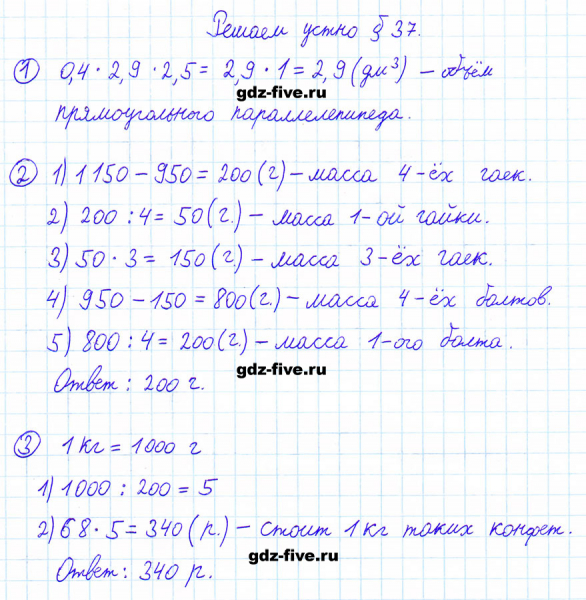 Решаем устно § 37.
① 0,4 · 2,9 · 2,5 = 2,9 · 1 = 2,9 (дм³) – объём
gdz-five.ru
прямоугольного параллелепипеда.
② 1) 1150 – 950 = 200 (г) – масса 4-ёх гаек.
2) 200 : 4 = 50 (г.) – масса 1-ой гайки.
3) 50 · 3 = 150 (г.) – масса 3-ёх гаек.
4) 950 – 150 = 800 (г.) – масса 4-ёх болтов.
5) 800 : 4 = 200 (г.) – масса 1-ого болта.
gdz-five.ru
Ответ: 200 г.
③ 1 кг = 1000 г
1) 1000 : 200 = 5
2) 68 · 5 = 340 (р.) – стоит 1 кг таких конфет.
gdz-five.ru
Ответ: 340 р.